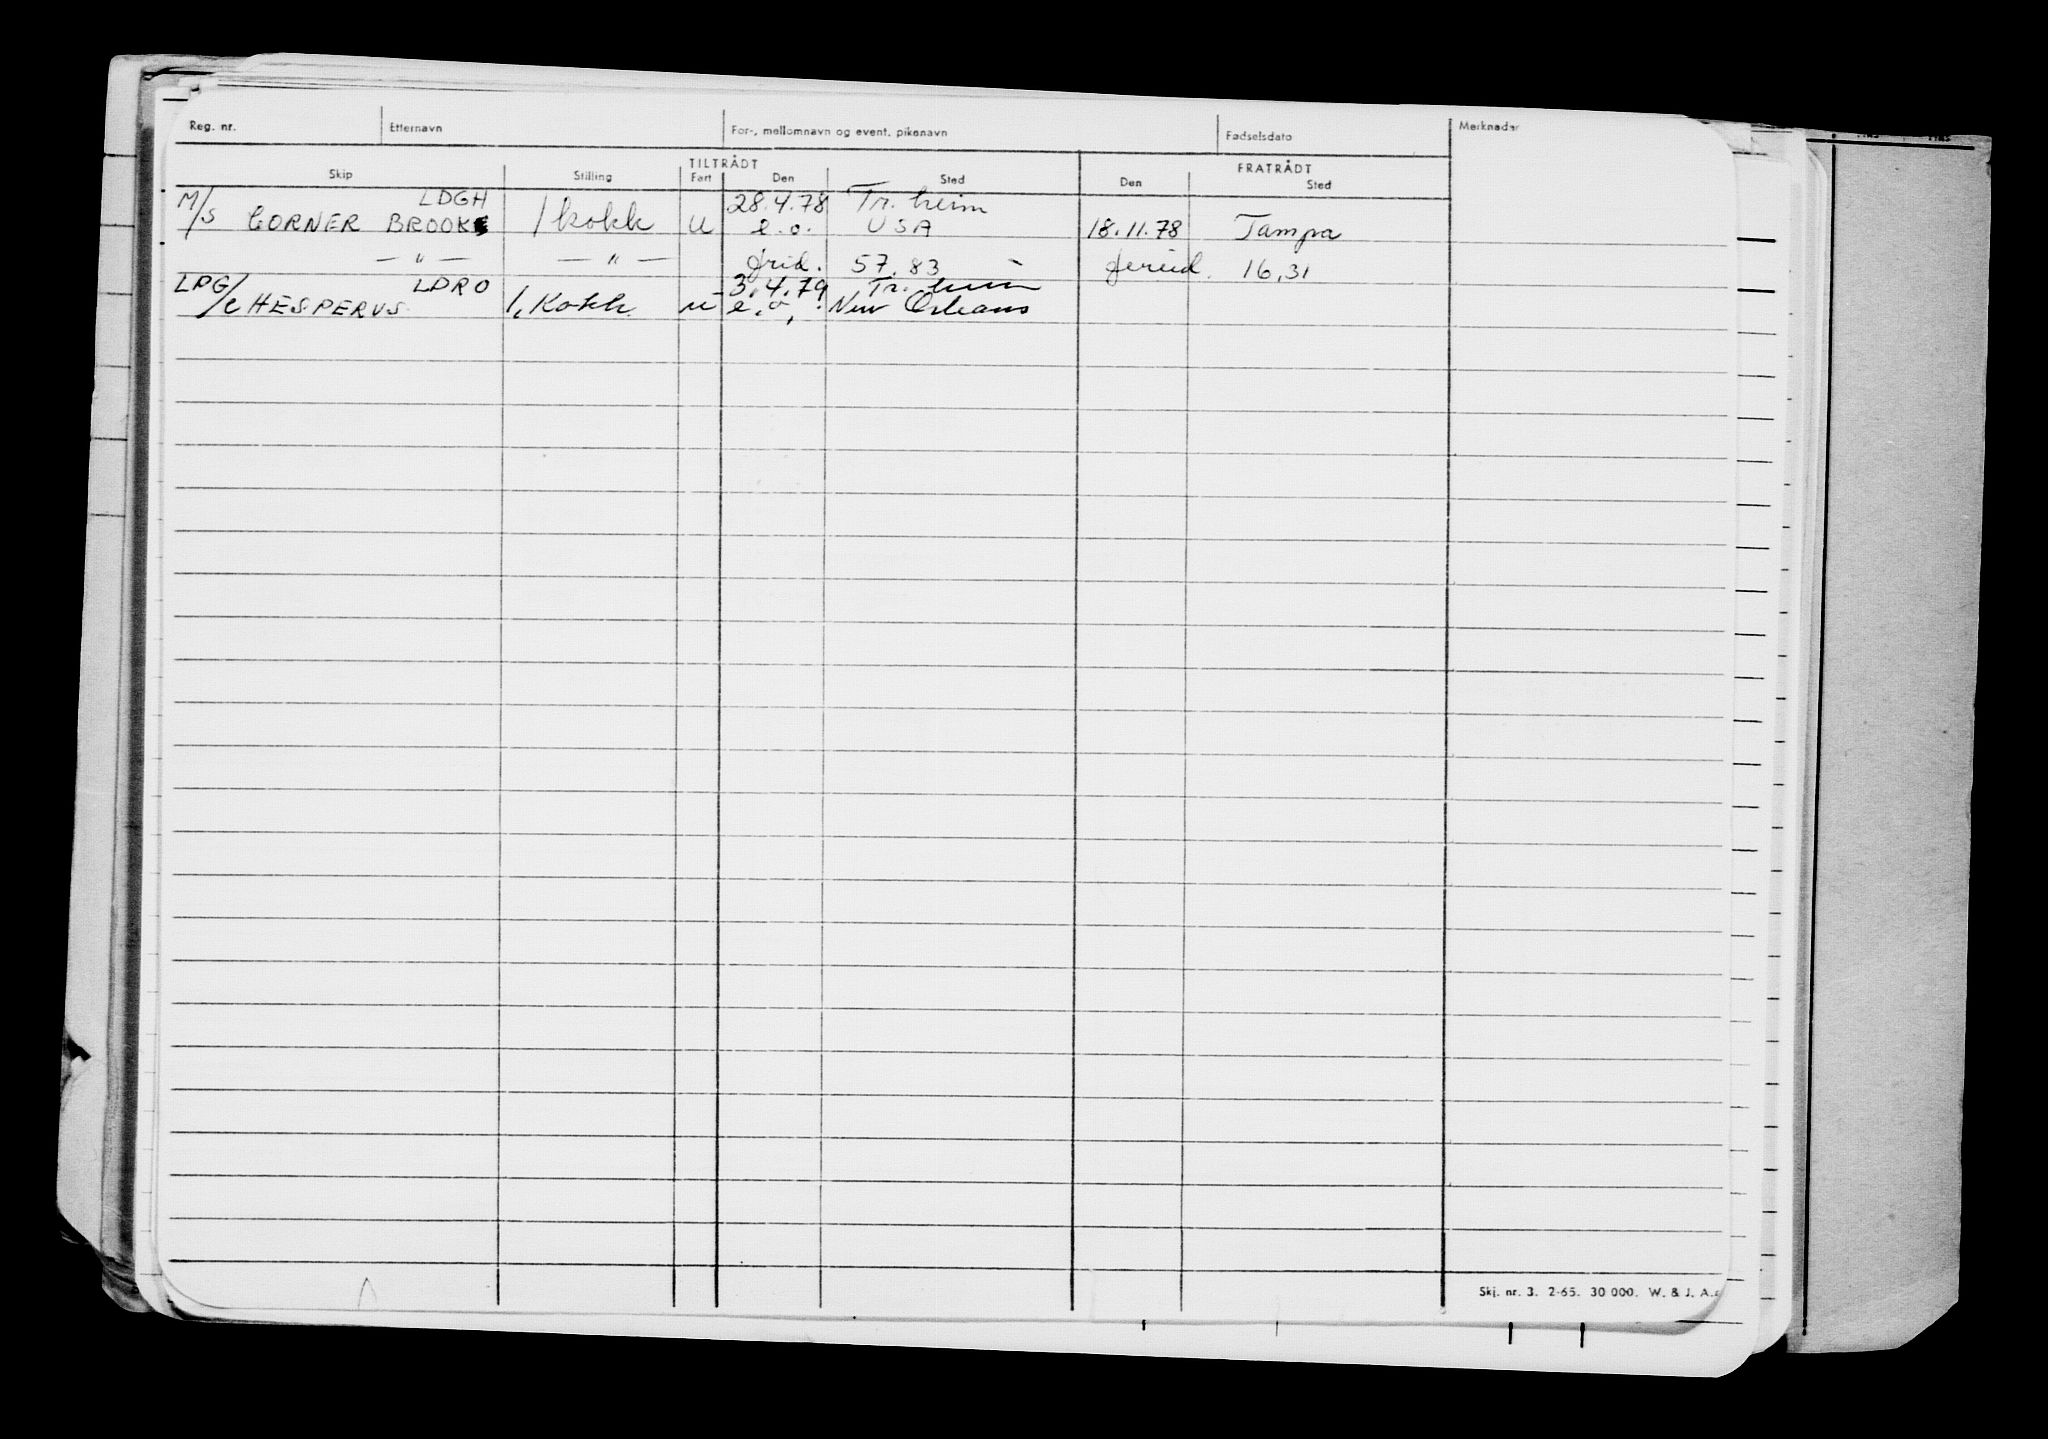 Reg. nr. Etternavn For-, mellomnavn og event. pikenavn Fødselsdato Merknader
TILTRÅDT FRATRÅDT
Skip Stilling Fart Den Sted Den Sted
M/S LDGH 28.4.78 Tr.heim
CORNER BROOK 1 kokk U e.o. USA 18.11.78 Tampa
— " — — " — frid. 57,83 feried. 16,31
LPG/C LDRO 3.4.79 Tr.heim
HESPERUS 1. Kokk u e.o. New Orleans
Skj. nr. 3. 2-65. 30 000. W. & J. A.s